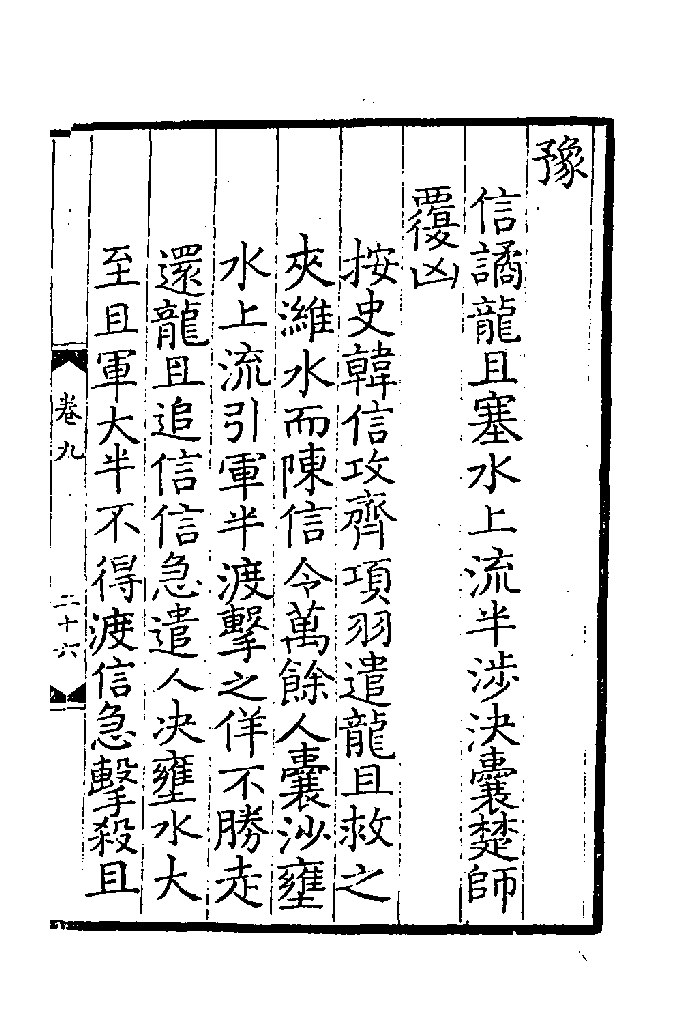 豫
信譎龍且塞水上流半涉決囊楚師
覆凶
按史韓信攻齊項羽遣龍且救之
夾濰水而陳信令萬餘人囊沙壅
水上流引軍半渡擊之佯不勝走
還龍且追信信急遣人决壅水大
至且軍大半不得渡信急擊殺且
卷九
二十六